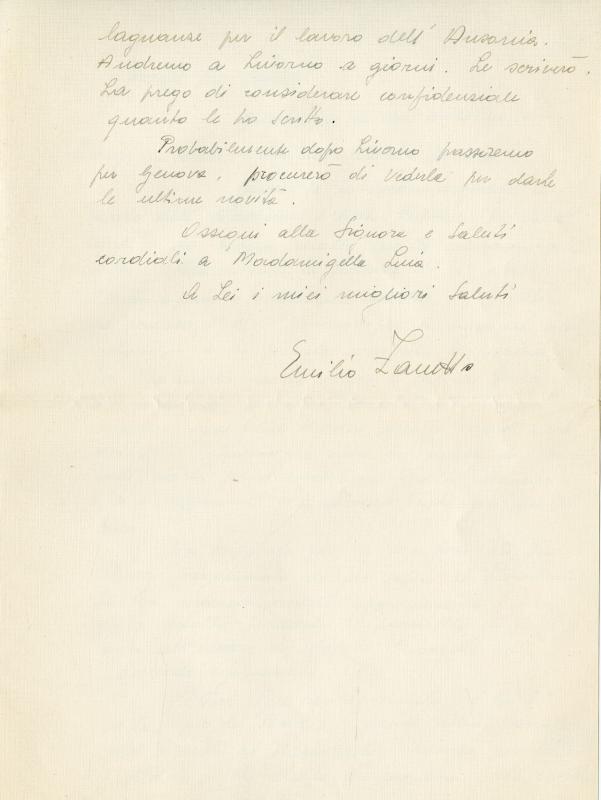 lagnanze per il lavoro dell' Ausonia.
Andremo a Livorno a giorni. Le scriverò.
La prego di considerare confidenziale
quanto le ho scritto.
Probabilmente dopo Livorno passeremo
per Genova, procurerò di vederla per darle
le ultime novità.
Ossequi alla Signora e Saluti
cordiali a Madamigella
A Lei i miei migliori Saluti
Emilio Zanotto